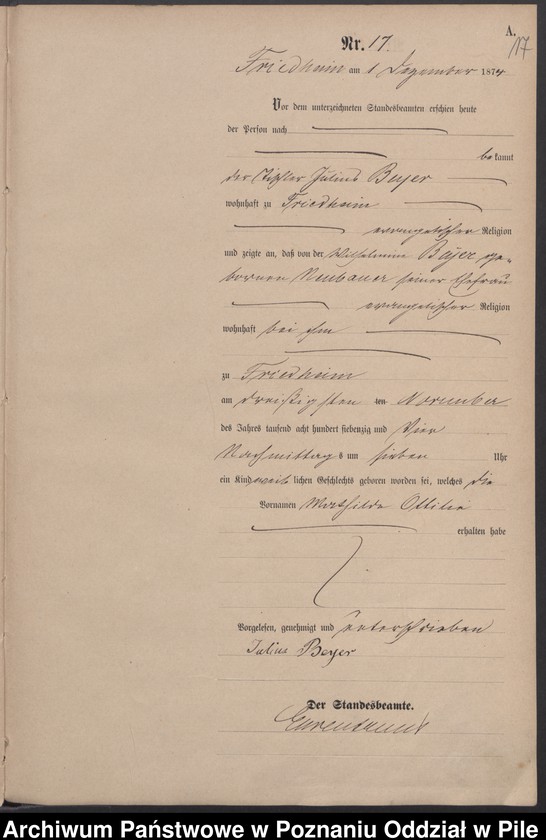 A.
17
Nr. 17.
Friedheim am 1 Dezember 1874
Vor dem unterzeichneten Standesbeamten erschien heute
der Person nach
bekannt
der Tischler Julius Beyer
wohnhaft zu Friedheim
evangelischer Religion
und zeigte an, daß von der Wilhelmine Beyer ge-
bornen Neubauer seiner Ehefrau
evangelischer Religion
wohnhaft bei ihm
zu Friedheim
am dreißigsten ten November
des Jahres tausend acht hundert siebenzig und Vier
Nachmittags um sieben Uhr
ein Kind weiblichen Geschlechts geboren worden sei, welches die
Vornamen Mathilde Ottilie
erhalten habe
Vorgelesen, genehmigt und unterschrieben
Julius Beyer
Der Standesbeamte.
Archiwum Państwowe w Poznaniu Oddział w Pile